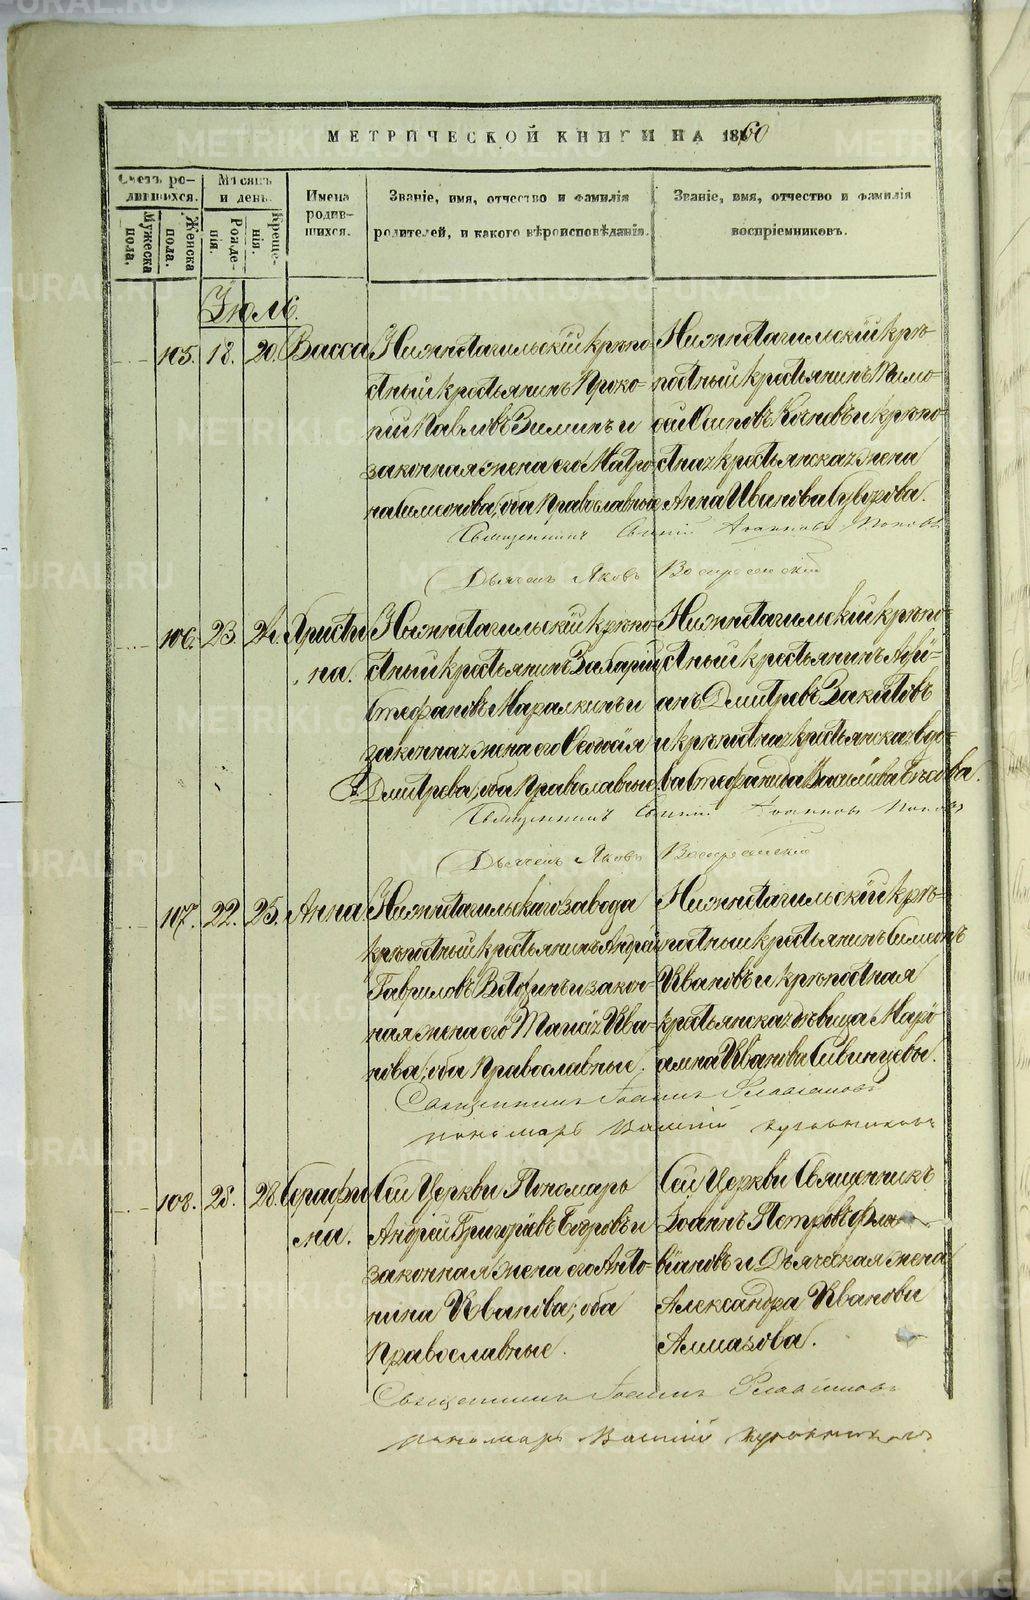 МЕТРИЧЕСКОЙ КНИГИ НА 1860
Счетъ родившихся.
Мѣсяцъ и день.
Имена родившихся.
Званіе, имя, отчество и фамилія родителей, и какого вѣроисповѣданія.
Званіе, имя, отчество и фамилія воспріемниковъ.
Мужеска пола.
Женска пола.
Рожденія.
Крещенія.
Іюль.
105. 18. 20. Васса
Нижнетагильскій крѣпо-
стный крестьянинъ Проко-
пій Павловъ Зиминъ и
законная жена его Матро-
на Симеонова, оба православные
Нижнетагильскій крѣ-
постный крестьянинъ Тимо-
фей Осиповъ и крѣпо-
стная крестьянская жена
Анна Иванова
Священникъ Поповъ
Дьячекъ Яковъ Воскресенскій
106. 23. 24. Христи
на.
Нижнетагильскій крѣпо-
стный крестьянинъ
Стефановъ и
законная жена его
Димитрева, оба православные
Нижнетагильскій крѣпо-
стный крестьянинъ Адрі-
анъ Дмитревъ
и крѣпостная крестьянская вдо-
ва Стефанида
Священникъ Поповъ
Дьячекъ Яковъ Воскресенскій
107. 22. 25. Анна
Нижнетагильскаго завода
крѣпостный крестьянинъ Андрей
Гавриловъ и закон-
ная жена его Ива-
нова, оба православные.
Нижнетагильскій крѣ-
постный крестьянинъ Симеонъ
Ивановъ и крѣпостная
крестьянская дѣвица Марі
амна Иванова Сивинцевы.
Священникъ Іоаннъ Флавіановъ
пономарь
108. 25. 28. Серафи
ма.
Сей Церкви Пономарь
Андрей Григоріевъ и
законная жена его Анто-
нина Иванова, оба
православные.
Сей Церкви Священникъ
Іоаннъ Петровъ Фла-
віановъ и Дьяческая жена
Александра Иванова
Алмазова.
Священникъ Іоаннъ Флавіановъ
пономарь
METRIKI.GASO-URAL.RU